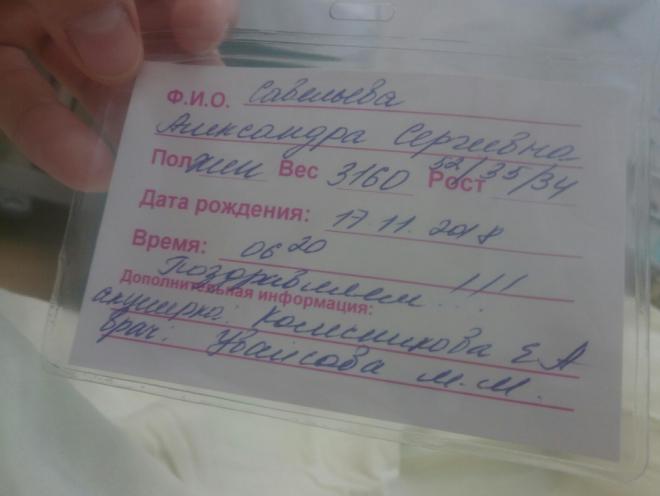 Ф.И.О. Савельева
Александра Сергеевна
Пол жен Вес 3160 Рост 52/35/34
Дата рождения: 17.11.2018
Время: 06 20
Поздравляем !!!
Дополнительная информация:
акушерка: Колесникова Е А
Врач: Уваисова М.М.